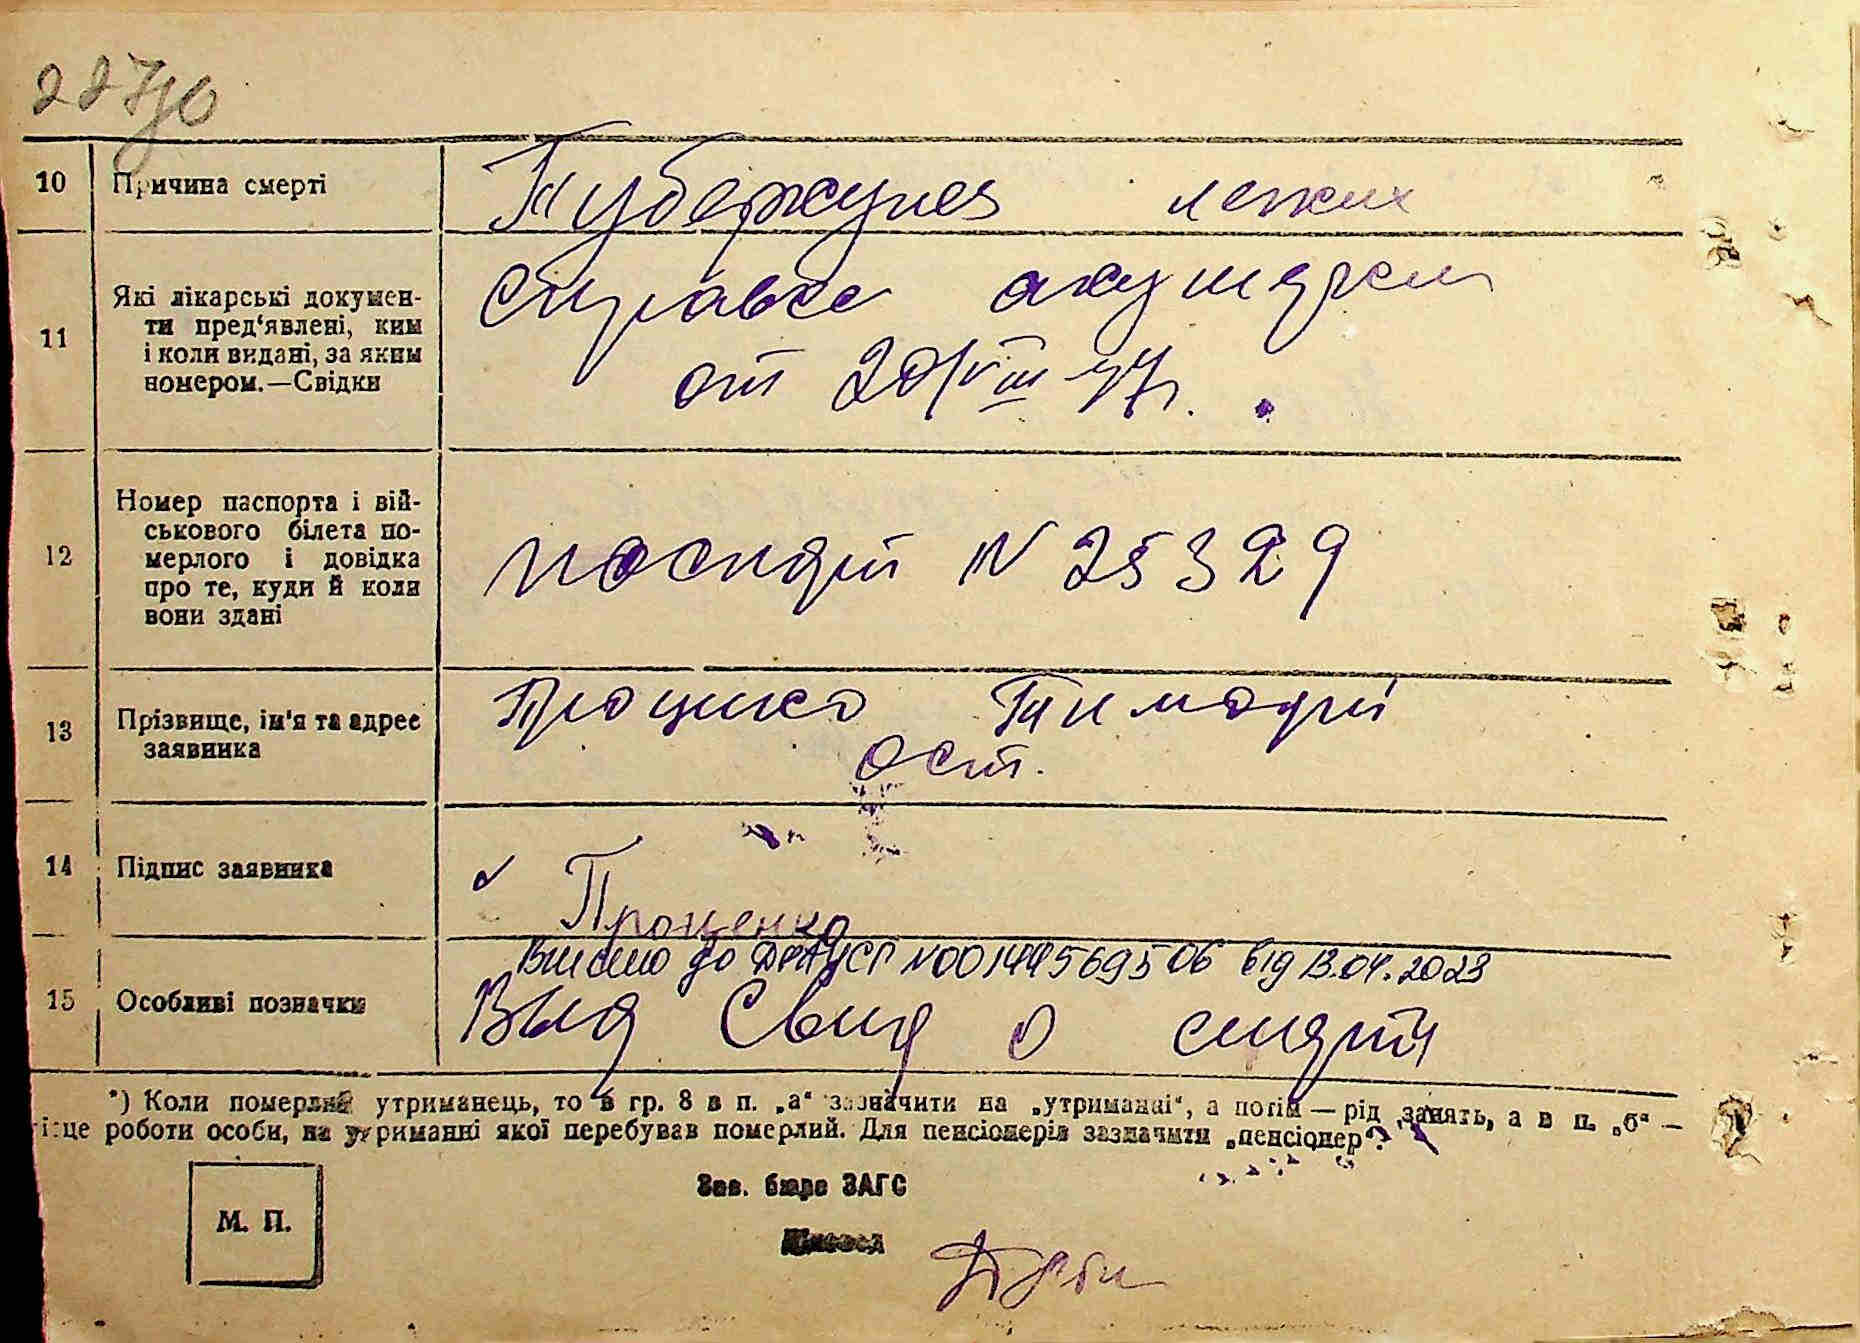 10 Причина смерті Туберкулез легких
11 Які лікарські докумен-
ти пред'явлені, ким
і коли видані, за яким
номером.—Свідки
Справка акушерки
от 20/VIII-47г.
12 Номер паспорта і вій-
ськового білета по-
мерлого і довідка
про те, куди й коли
вони здані
паспорт N 25329
13 Прізвище, ім'я та адрес
заявника
Проценко Тимофій
ост.
14 Підпис заявника
Проценко
Внесено до ДРАЦСГ N00144569506 від 13.04.2023
15 Особливі позначки Выд Свид о смерти
*) Коли померлий утриманець, то в гр. 8 в п. „а“ зазначити на „утриманні“, а потім — рід занять, а в п. „б“ —
місце роботи особи, на утриманні якої перебував померлий. Для пенсіонерів зазначити „пенсіонер“.
Зав. бюро ЗАГС
М. П.